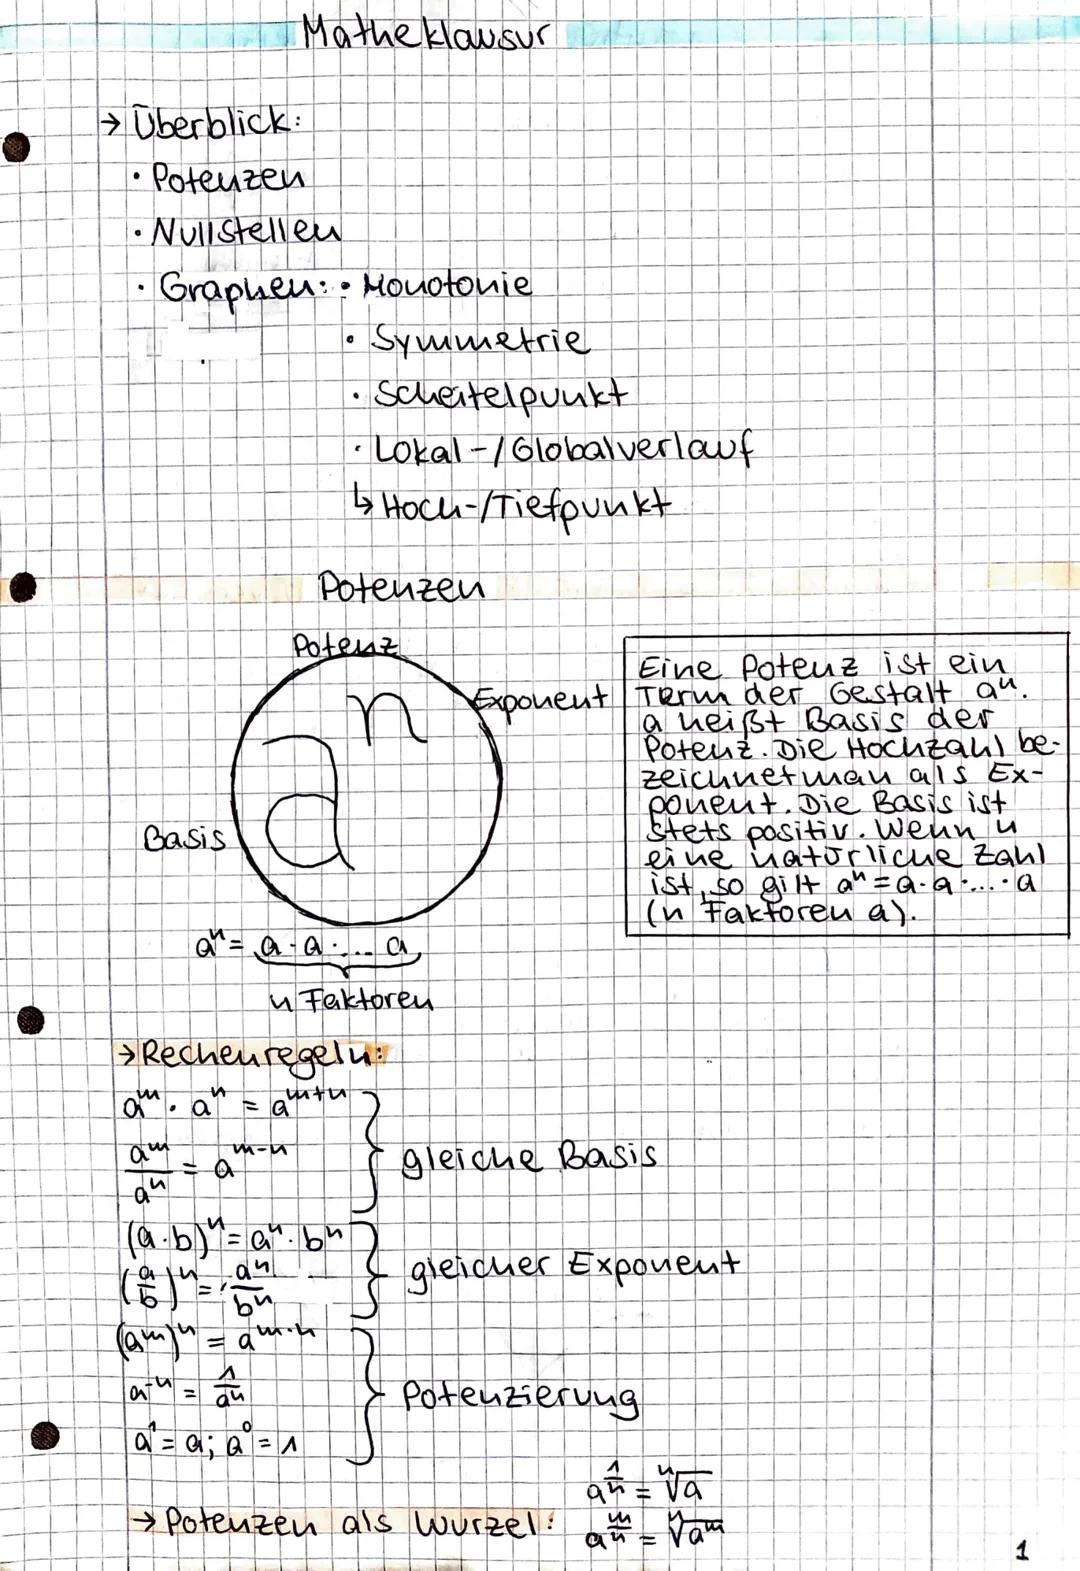 Matheklausur
→ Überblick:
· Potenzen
· Nullstellen
· Graphen: · Monotonie
· Symmetrie
· Scheitelpunkt
· Lokal-/Globalverlauf
↳ Hoch-/Tiefpunkt
Potenzen
Potenz
Exponent
n
a
Basis
aⁿ = a · a · ... a
n Faktoren
Eine Potenz ist ein
Term der Gestalt aⁿ.
a heißt Basis der
Potenz. Die Hochzahl be-
zeichnet man als Ex-
ponent. Die Basis ist
stets positiv. Wenn n
eine natürliche Zahl
ist, so gilt aⁿ = a·a·...·a
(n Faktoren a).
→ Rechenregeln:
aᵐ · aⁿ = aᵐ⁺ⁿ
aᵐ/aⁿ = aᵐ⁻ⁿ
gleiche Basis
(a·b)ⁿ = aⁿ · bⁿ
(a/b)ⁿ = aⁿ/bⁿ
gleicher Exponent
(aᵐ)ⁿ = a^(m·n)
a⁻ⁿ = 1/aⁿ
a¹ = a; a⁰ = 1
Potenzierung
a^(1/n) = ⁿ√a
→ Potenzen als Wurzel: a^(m/n) = ⁿ√aᵐ
1